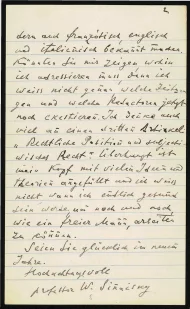 2
dern und französisch, englisch
und italienisch bekannt machen.
Könnten Sie mir zeigen wohin
ich adressieren muss denn ich
weiss nicht genau welche Zeitun-
gen und welche Redactoren jetzt
noch existieren. Ich denke noch
viel an einen dritten Artikel
"Rechtliche Position und
Recht". Überhaupt ist
mein Kopf mit vielen Ideen und
Theorien angefüllt und ich weiss
nicht wann ich endlich gesund
sein werde, um nach und nach
wie ein freier Mann, arbeiten
zu können.
Seien Sie glücklich im neuen
Jahre.
Hochachtungsvoll
professor W.